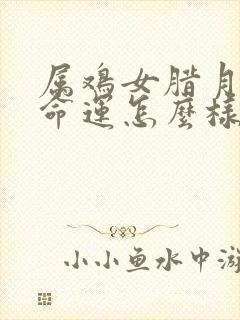 属鸡女腊月
命运怎麽样
小小鱼水中游